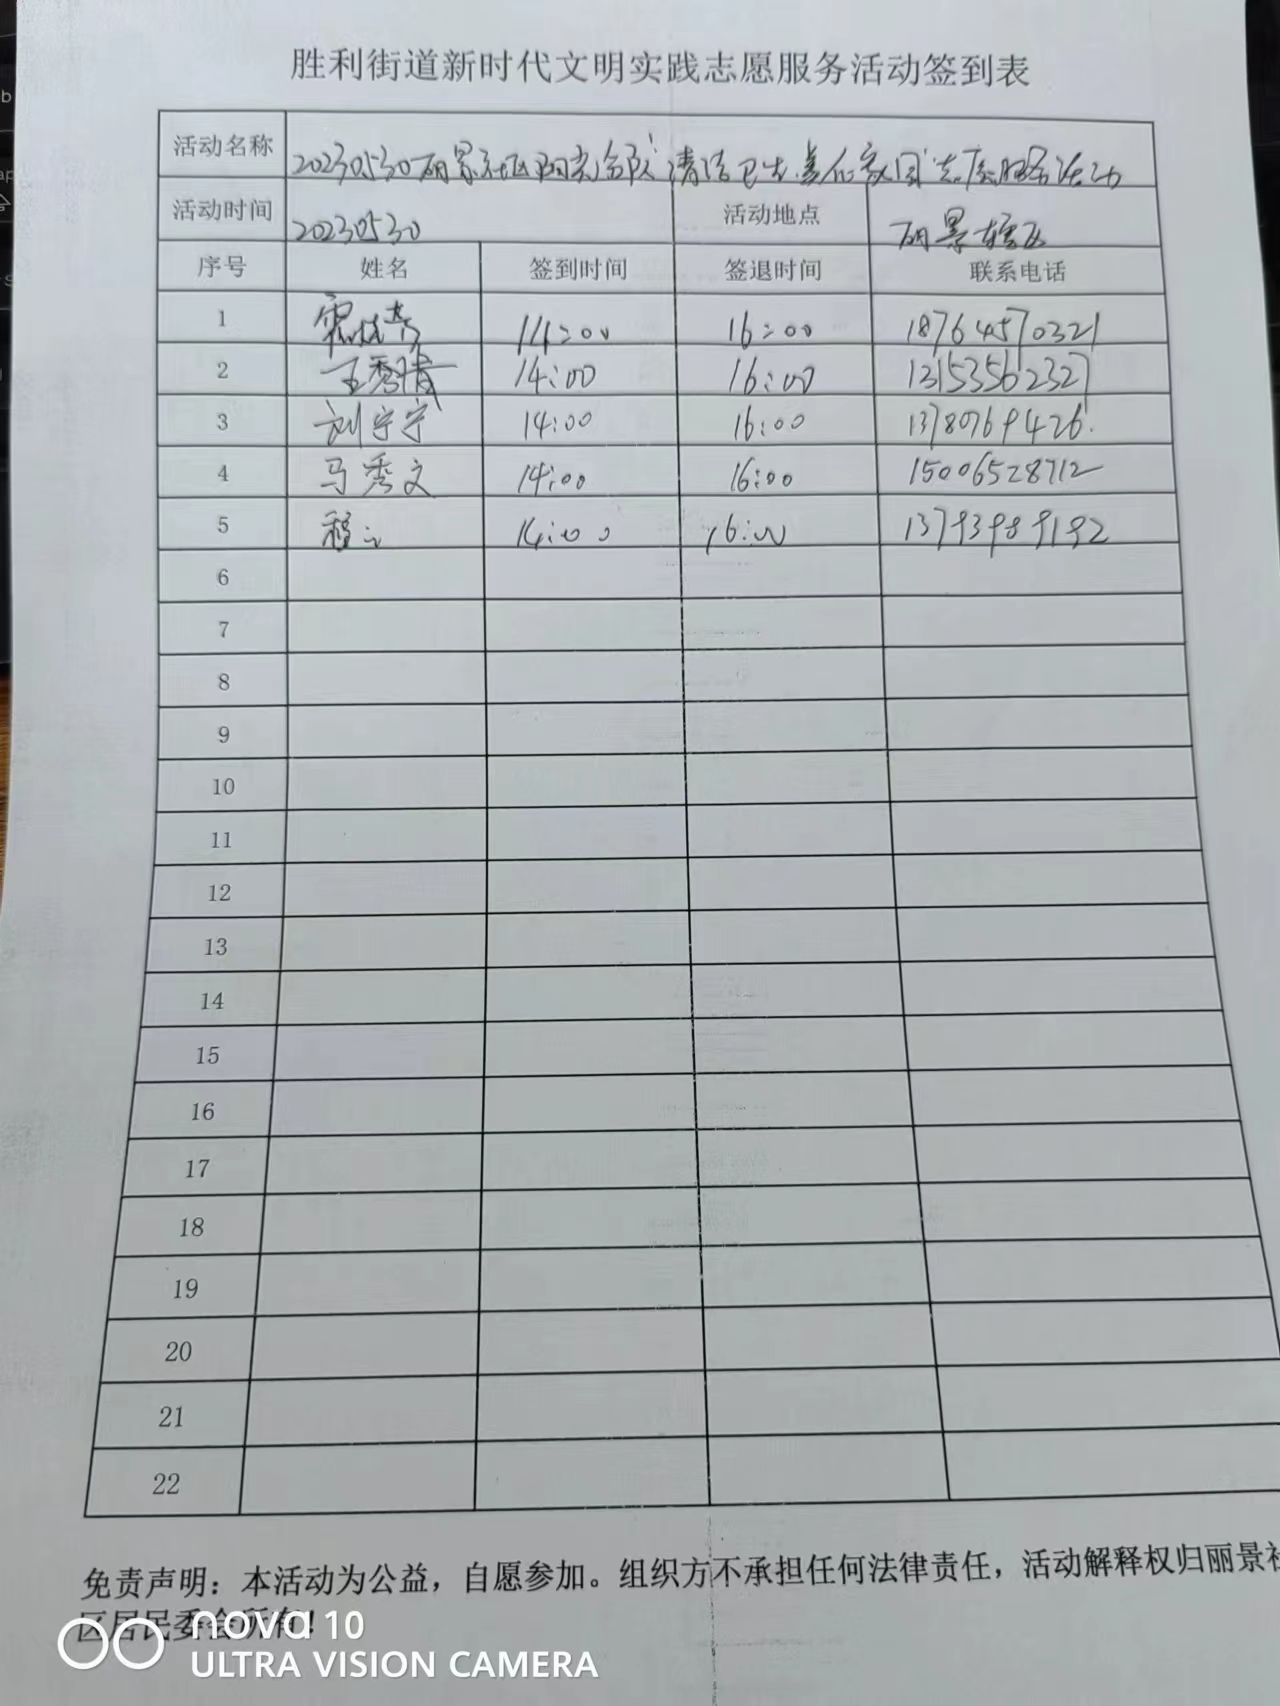 胜利街道新时代文明实践志愿服务活动签到表
活动名称 20230530丽景社区阳光分队“清洁卫生 美化家园”志愿服务活动
活动时间 20230530 活动地点 丽景辖区
序号 姓名 签到时间 签退时间 联系电话
1 14:00 16:00 18764570321
2 王秀晴 14:00 16:00 13153562327
3 刘宁宁 14:00 16:00 13780769426
4 马秀文 14:00 16:00 15006528712
5 程 14:00 16:00 13793989192
6
7
8
9
10
11
12
13
14
15
16
17
18
19
20
21
22
免责声明：本活动为公益，自愿参加。组织方不承担任何法律责任，活动解释权归丽景社
区居民委会所有！
nova 10
ULTRA VISION CAMERA